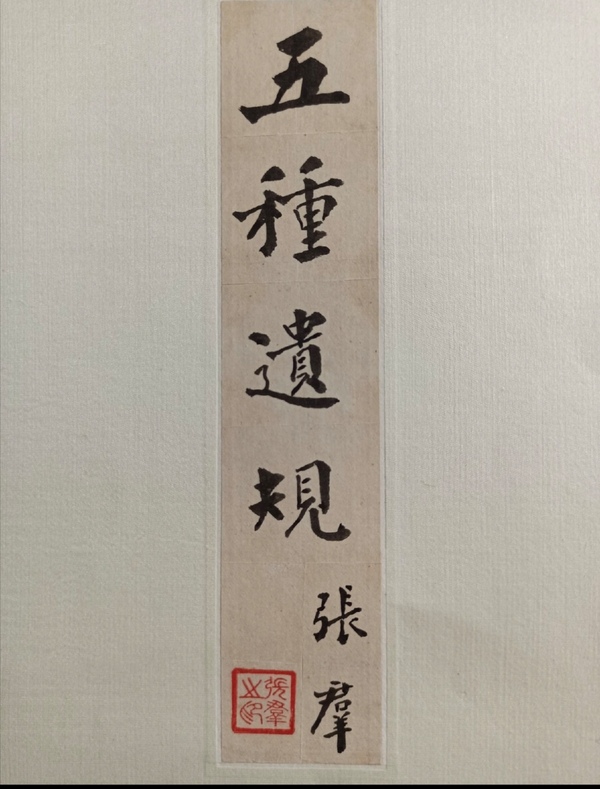 五種遺規
張羣
張羣之印